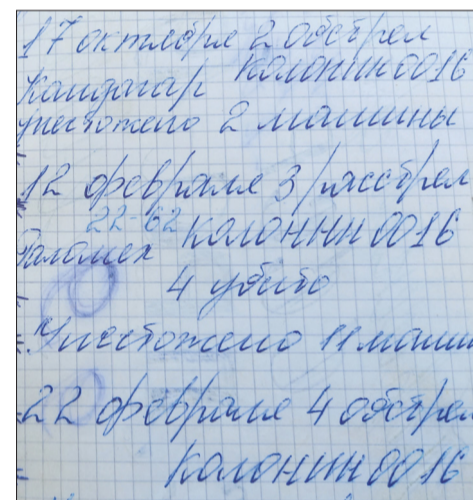 17 октлбре 2 обстрел
Кандагар колонин 0016
унестожено 2 машины
12 феврале 3 расстрел
22-62
колонин 0016
4 убито
Унестожено 11 маши
22 феврале 4 обстрел
Колонин 0016